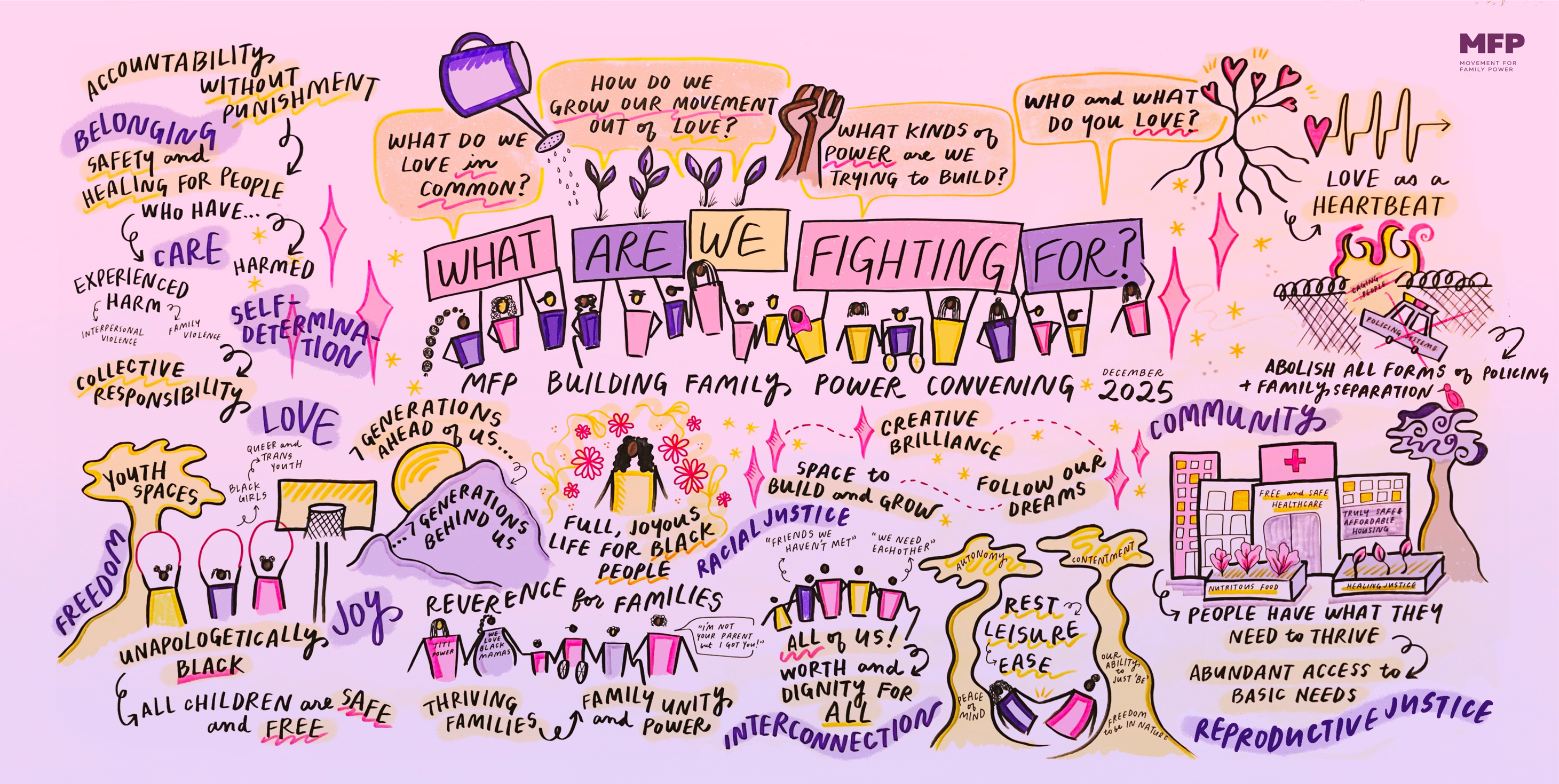 MFP
MOVEMENT FOR
FAMILY POWER
ACCOUNTABILITY
WITHOUT
PUNISHMENT
BELONGING
SAFETY and
HEALING FOR PEOPLE
WHO HAVE...
CARE
HARMED
EXPERIENCED
HARM
INTERPERSONAL
VIOLENCE
FAMILY
VIOLENCE
SELF-
DETERMINA-
TION
COLLECTIVE
RESPONSIBILITY
WHAT DO WE
LOVE in
COMMON?
HOW DO WE
GROW OUR MOVEMENT
OUT of LOVE?
WHAT KINDS of
POWER are WE
TRYING to BUILD?
WHO and WHAT
DO YOU LOVE?
LOVE as a
HEARTBEAT
WHAT ARE WE FIGHTING FOR?
MFP BUILDING FAMILY POWER CONVENING
DECEMBER
2025
CAGING
PEOPLE
POLICING SYSTEMS
ABOLISH ALL FORMS of POLICING
+ FAMILY SEPARATION
LOVE
QUEER and
TRANS
YOUTH
BLACK
GIRLS
YOUTH
SPACES
FREEDOM
JOY
UNAPOLOGETICALLY
BLACK
ALL CHILDREN are SAFE
and FREE
7 GENERATIONS
AHEAD of US...
...7 GENERATIONS
BEHIND
US
FULL, JOYOUS
LIFE FOR BLACK
PEOPLE
CREATIVE
BRILLIANCE
SPACE to
BUILD and GROW
FOLLOW OUR
DREAMS
RACIAL JUSTICE
REVERENCE for FAMILIES
TITI
POWER
WE
LOVE
BLACK
MAMAS
"I'M NOT
YOUR PARENT
but I GOT YOU!"
THRIVING
FAMILIES
FAMILY UNITY
and POWER
"FRIENDS WE
HAVEN'T MET"
"WE NEED
EACHOTHER"
ALL of US!
WORTH and
DIGNITY FOR
ALL
INTERCONNECTION
AUTONOMY
CONTENTMENT
REST
LEISURE
EASE
PEACE
of
MIND
OUR
ABILITY
to
JUST 'BE'
FREEDOM
to be IN NATURE
COMMUNITY
FREE and SAFE
HEALTHCARE
TRULY SAFE &
AFFORDABLE
HOUSING
NUTRITOUS FOOD
HEALING JUSTICE
PEOPLE HAVE WHAT THEY
NEED to THRIVE
ABUNDANT ACCESS to
BASIC NEEDS
REPRODUCTIVE JUSTICE